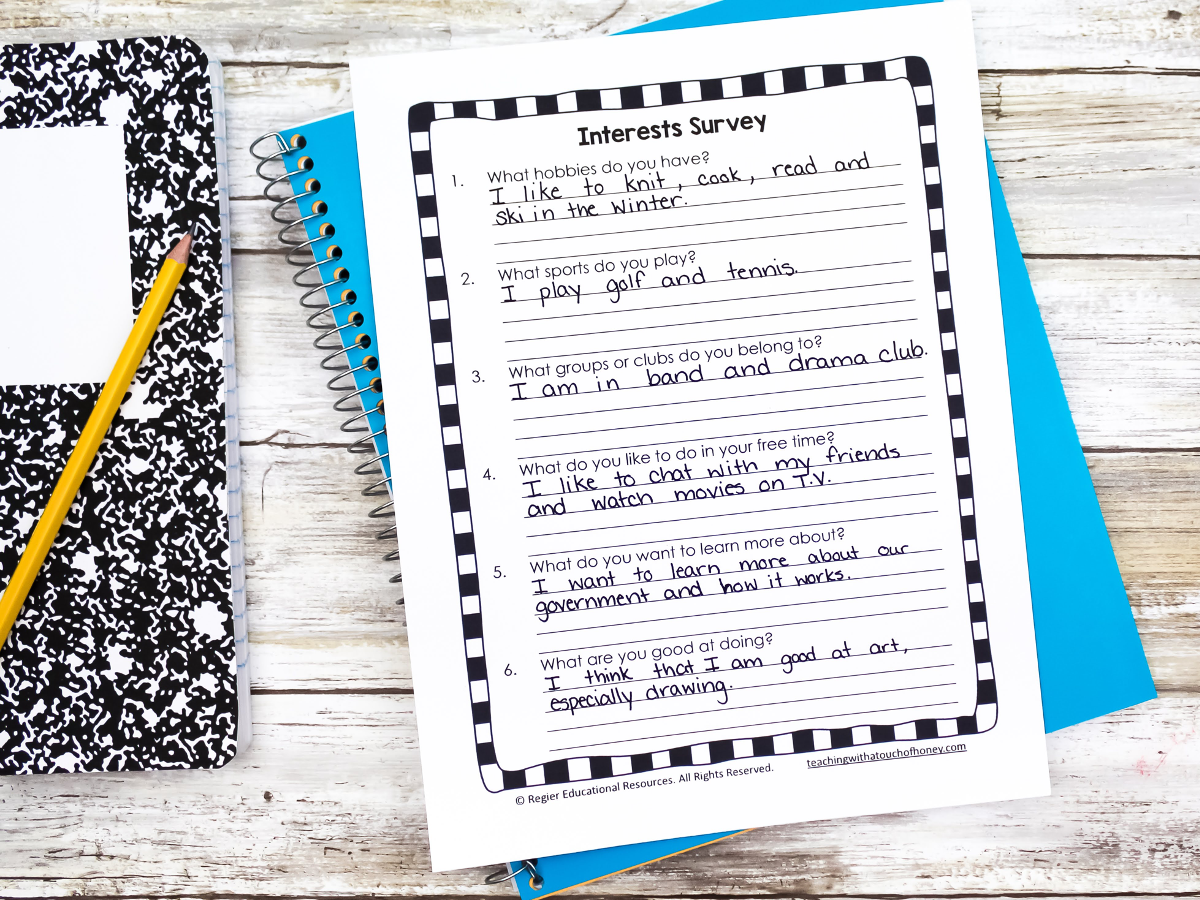 Interests Survey
1. What hobbies do you have?
I like to knit, cook, read and
ski in the winter.
2. What sports do you play?
I play golf and tennis.
3. What groups or clubs do you belong to?
I am in band and drama club.
4. What do you like to do in your free time?
I like to chat with my friends
and watch movies on T.V.
5. What do you want to learn more about?
I want to learn more about our
government and how it works.
6. What are you good at doing?
I think that I am good at art,
especially drawing.
© Regier Educational Resources. All Rights Reserved. teachingwithatouchofhoney.com